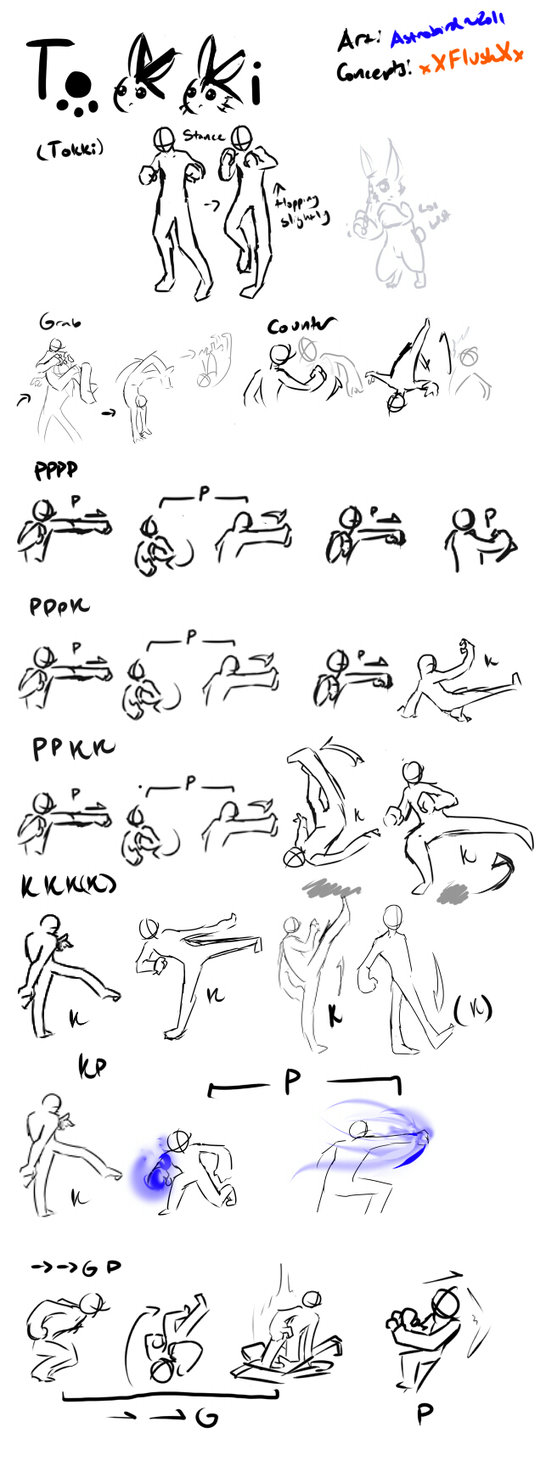 ToKKi
Art: Astrobird~2011
Concepts: xXFlushXx
(Tokki)
Stance
→
↑
Hopping
slightly
Grab
Counter
→
PPPP
P
P
P
P
PPPK
P
P
P
K
PPKK
P
P
K
K
KKK(K)
K
K
K
(K)
KP
P
K
→→GP
→→G
P